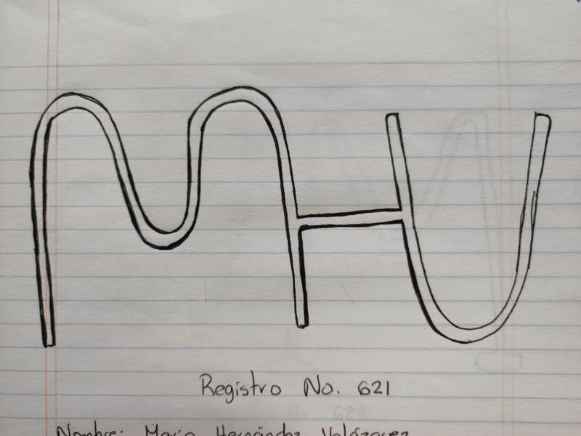 MHU
Registro No. 621
Nombre: Mario Hernández Velázquez